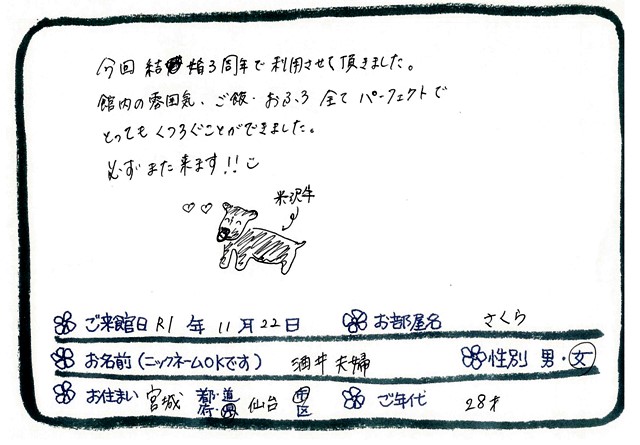 今回 結婚3周年で利用させて頂きました。
館内の雰囲気、ご飯・おふろ 全て パーフェクトで
とってもくつろぐことができました。
必ずまた来ます!!
米沢牛
ご来館日 R1 年 11 月 22 日 お部屋名 さくら
お名前(ニックネームOKです) 酒井夫婦 性別 男・女
お住まい 宮城 都・道 府・県 仙台 市 区 ご年代 28才